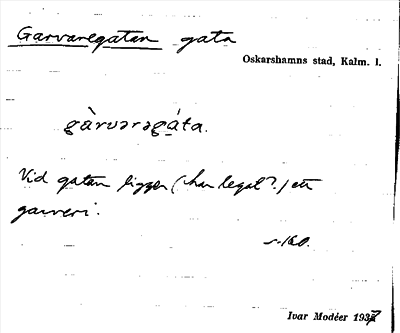 Garvaregatan gata
Oskarshamns stad, Kalm. l.
gàrvərəgáta.
Vid gatan ligger (har legat?) ett
garveri.
s. 160.
Ivar Modéer 1937